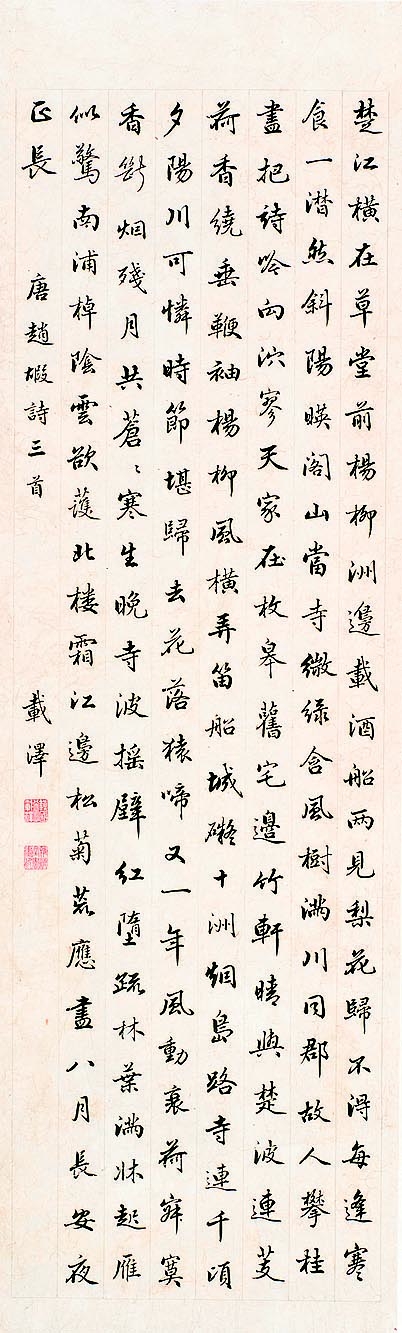 楚江橫在草堂前楊柳洲邊載酒船兩見梨花歸不得每逢寒
食一潸然斜陽暎閣山當寺微綠含風樹滿川同郡故人攀桂
盡把詩吟向泬寥天家在枚皋舊宅邊竹軒晴與楚波連芰
荷香繞垂鞭袖楊柳風橫弄笛船城礙十洲烟島路寺連千頃
夕陽川可憐時節堪歸去花落猿啼又一年風動衰荷寂寞
香斷烟殘月共蒼〻寒生晚寺波搖壁紅墮疏林葉滿牀起雁
似驚南浦棹陰雲欲護北樓霜江邊松菊荒應盡八月長安夜
正長 唐趙嘏詩三首 載澤